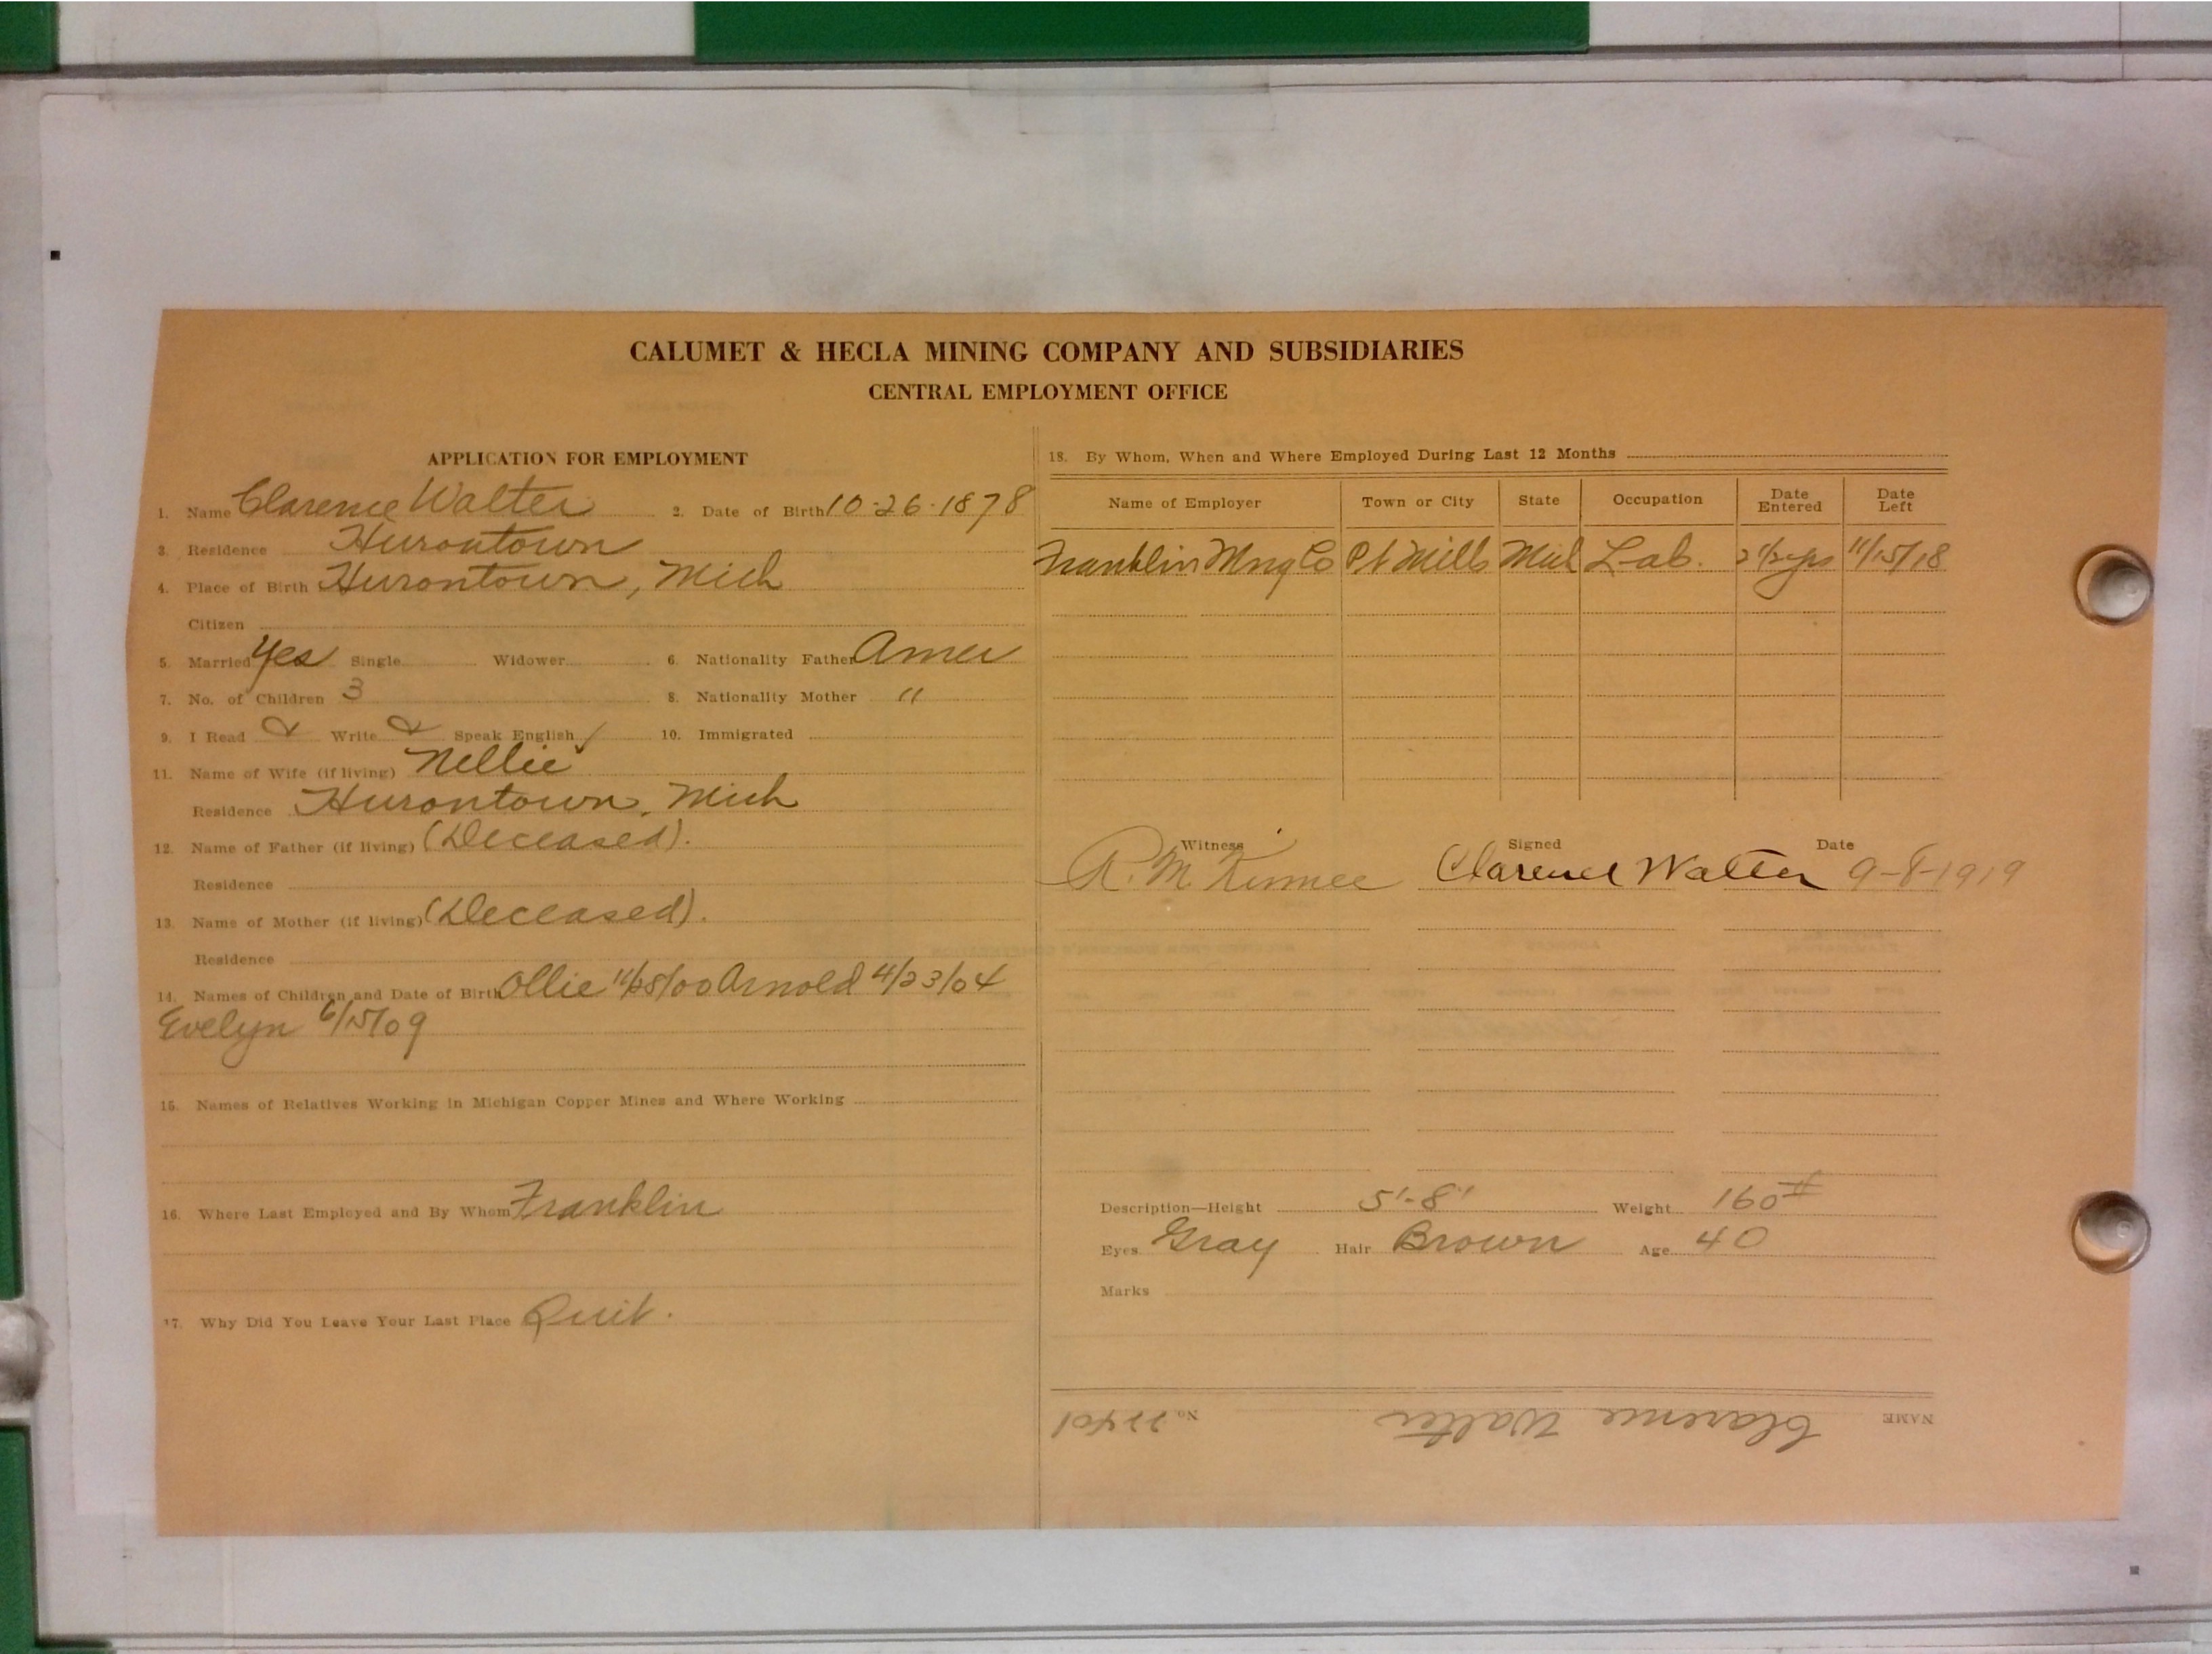 CALUMET & HECLA MINING COMPANY AND SUBSIDIARIES
CENTRAL EMPLOYMENT OFFICE
APPLICATION FOR EMPLOYMENT
1. Name Clarence Walter 2. Date of Birth 10-26-1878
3. Residence Hurontown
4. Place of Birth Hurontown, Mich
Citizen
5. Married Yes Single Widower 6. Nationality Father Amer
7. No. of Children 3 8. Nationality Mother "
9. I Read Write Speak English 10. Immigrated
11. Name of Wife (if living) Nellie
Residence Hurontown, Mich
12. Name of Father (if living) (Deceased).
Residence
13. Name of Mother (if living) (Deceased).
Residence
14. Names of Children and Date of Birth Ollie 11/28/00 Arnold 4/23/04
Evelyn 6/15/09
15. Names of Relatives Working in Michigan Copper Mines and Where Working
16. Where Last Employed and By Whom Franklin
17. Why Did You Leave Your Last Place Quit.
18. By Whom, When and Where Employed During Last 12 Months
Name of Employer Town or City State Occupation Date Entered Date Left
Franklin Mng Co Pt Mills Mich Lab. 2 1/2 yrs 11/15/18
Witness Signed Date
R. M. Clarence Walter 9-8-1919
Description—Height 5'-8' Weight 160#
Eyes Gray Hair Brown Age 40
Marks
NAME Clarence Walter No. 22401